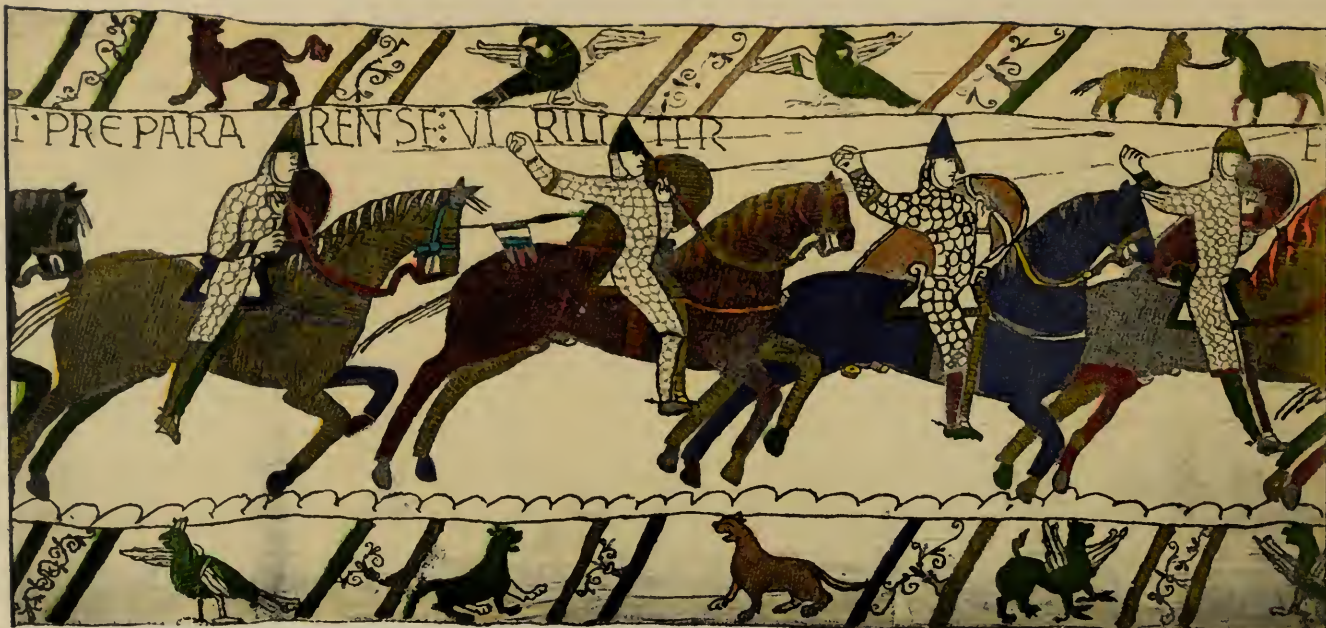 T·PREPARA RENSE:VI RILI TER E